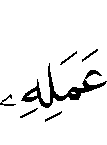 عَمَلِهِۦ